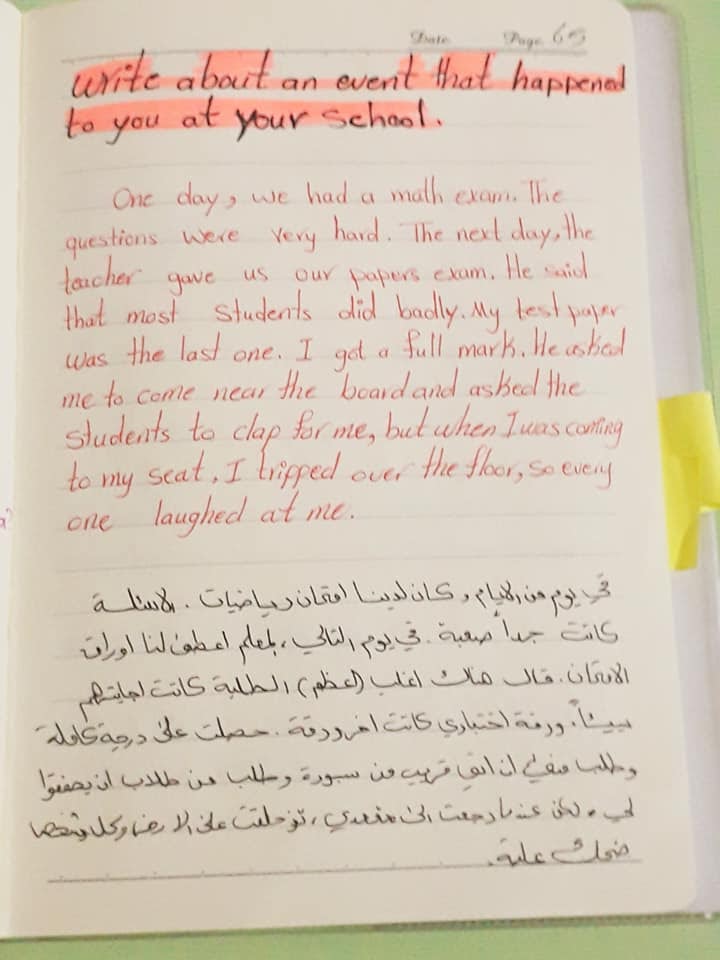 Date Page 65
write about an event that happened
to you at your school.
One day, we had a math exam. The
questions were very hard. The next day, the
teacher gave us our papers exam. He said
that most students did badly. My test paper
was the last one. I got a full mark. He asked
me to come near the board and asked the
students to clap for me, but when I was coming
to my seat, I tripped over the floor, so every
one laughed at me.
في يوم من الايام، وكان لدينا امتحان رياضيات. الاسئلة
كانت جداً صعبة. في يوم التالي، المعلم اعطى لنا اوراق
الامتحان. قال هناك اغلب (اعظم) الطلبة كانت اجابتهم
سيئاً. ورقة اختباري كانت اخر ورقة. حصلت على درجة كاملة
وطلب مني ان اقف قريب من سبورة وطلب من طلاب ان يصفقوا
لي. لكن عندما رجعت الى مقعدي، تزحلقت على الارض وكل
ضحك علية.